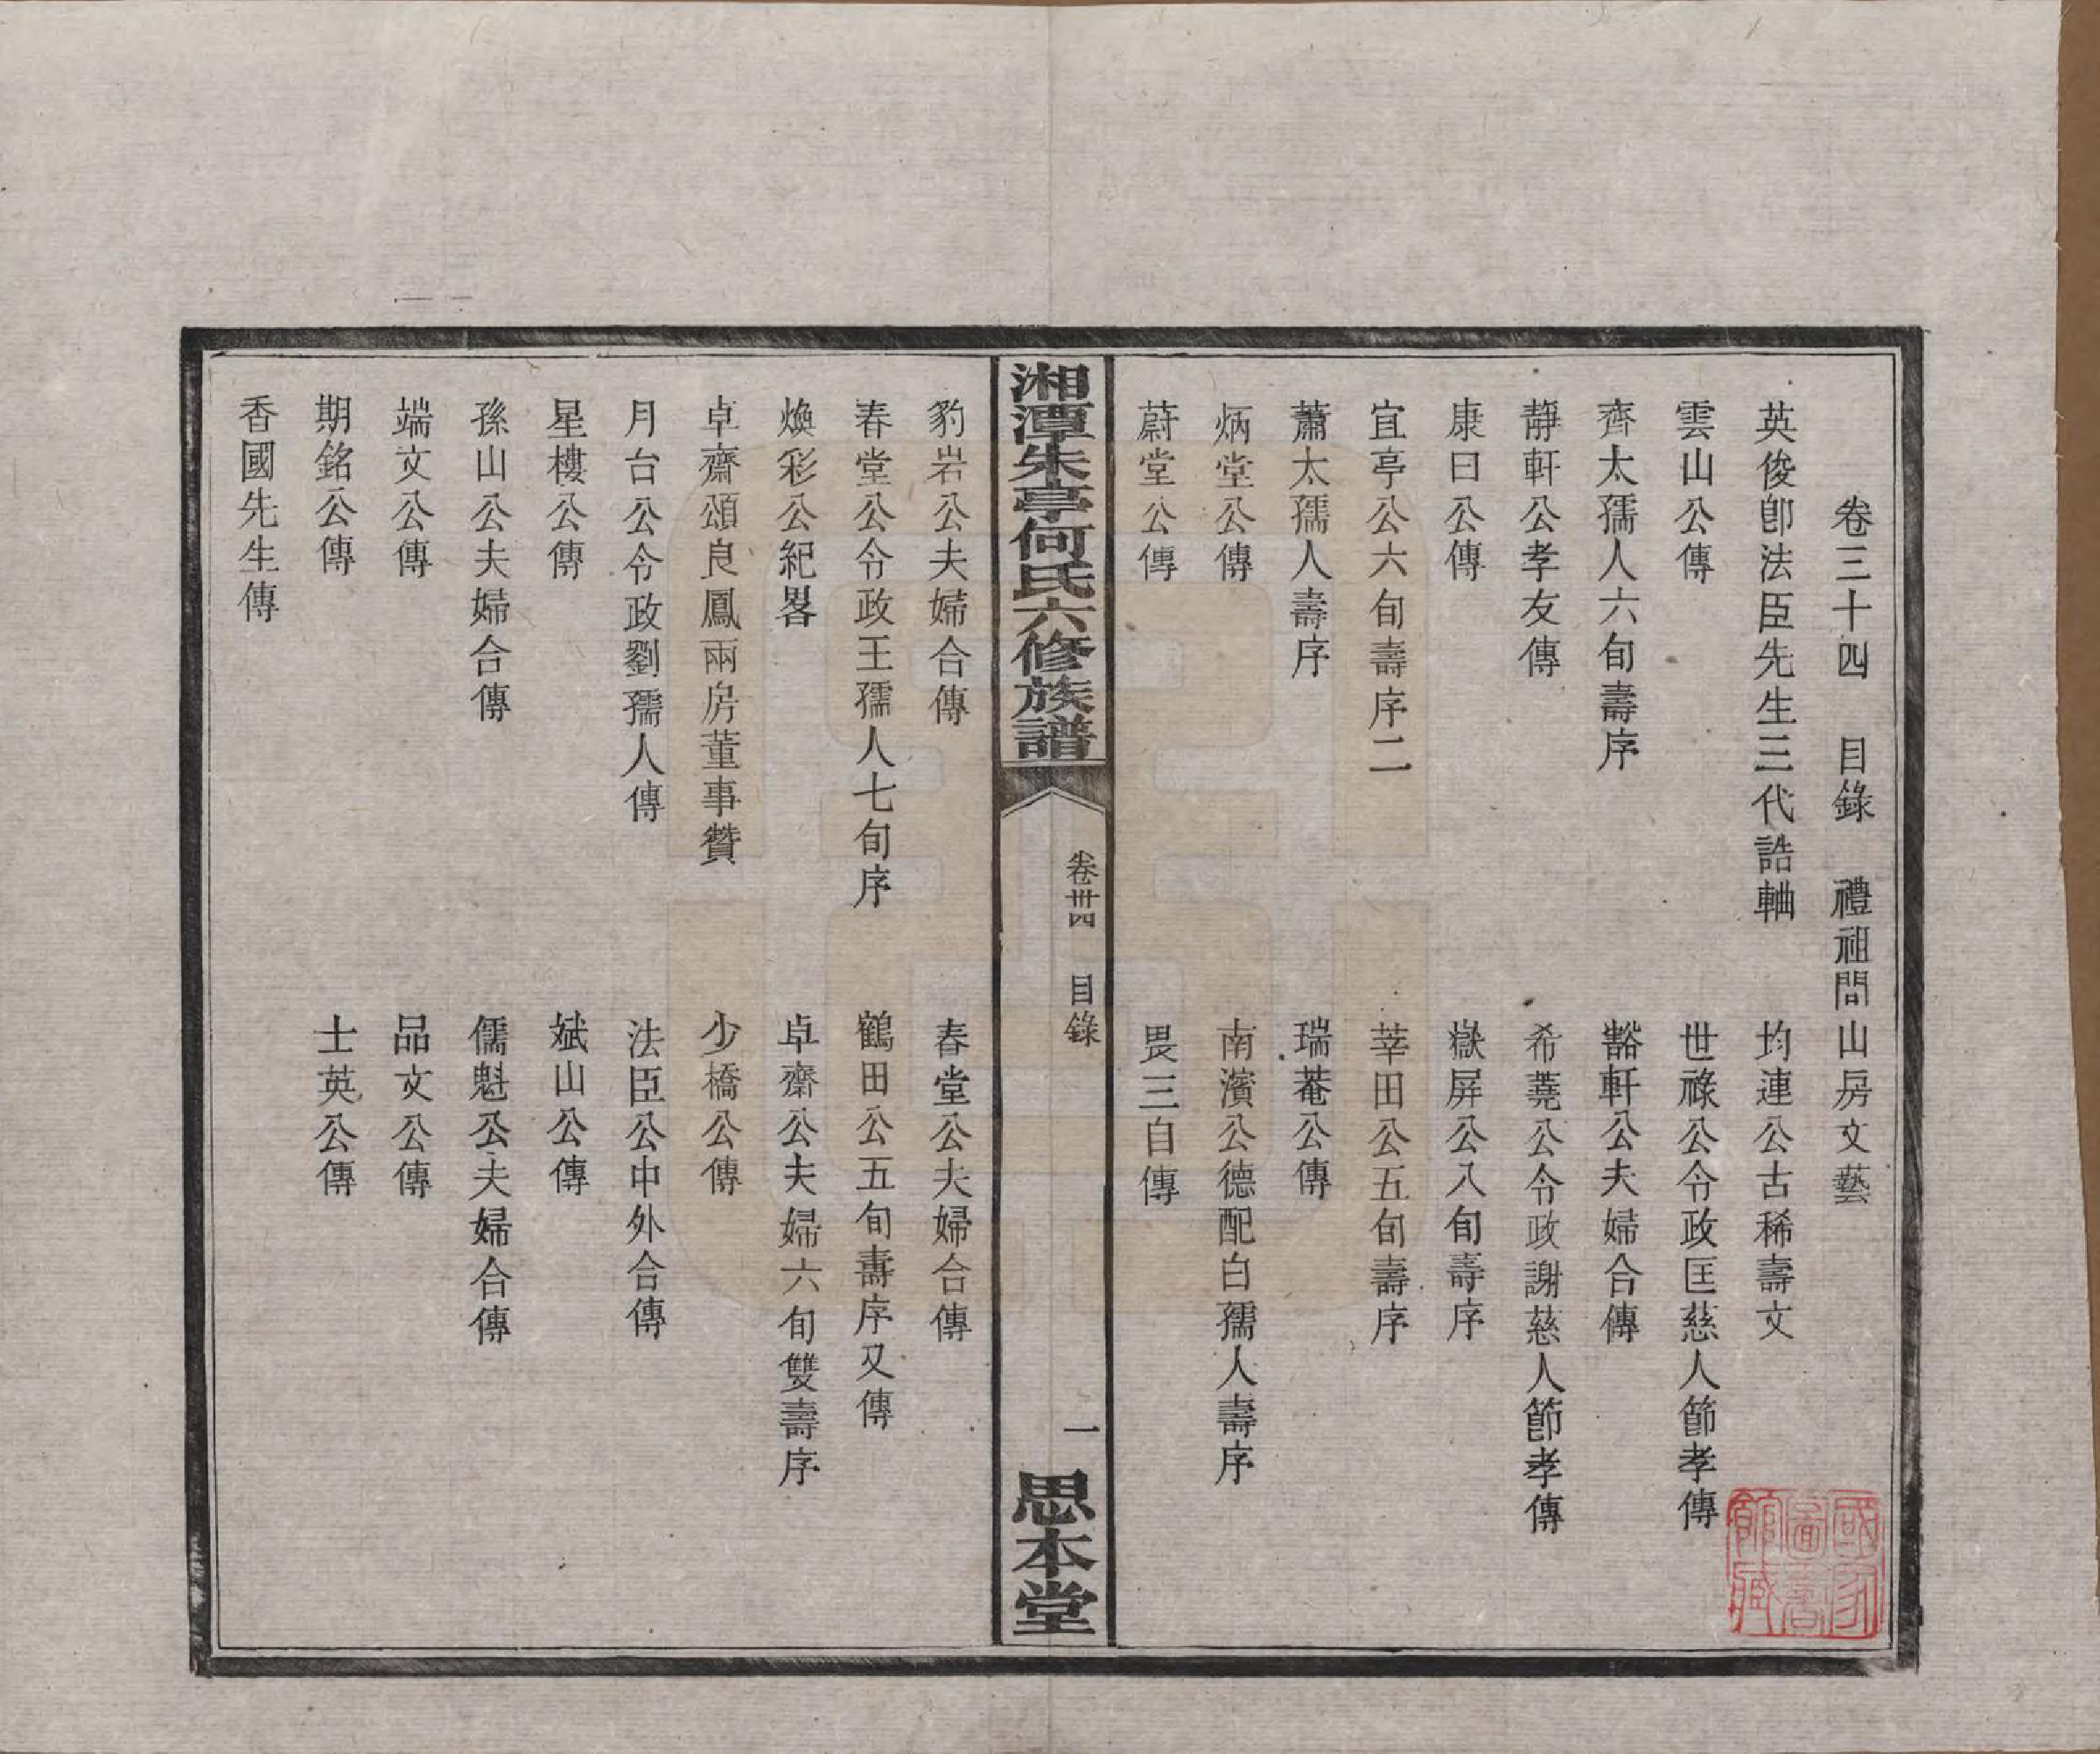 卷三十四　目錄　禮祖問山房文藝
英俊卽法臣先生三代誥軸　均連公古稀壽文
雲山公傳　世祿公令政匡慈人節孝傳
齊太孺人六旬壽序　豁軒公夫婦合傳
靜軒公孝友傳　希蕘公令政謝慈人節孝傳
康曰公傳　嶽屏公八旬壽序
宜亭公六旬壽序二　莘田公五旬壽序
蕭太孺人壽序　瑞菴公傳
炳堂公傳　南濱公德配白孺人壽序
蔚堂公傳　畏三自傳
湘潭朱亭何氏六修族譜　卷卅四　目錄　一　思本堂
豹岩公夫婦合傳　春堂公夫婦合傳
春堂公令政王孺人七旬序　鶴田公五旬壽序又傳
煥彩公紀畧　卓齋公夫婦六旬雙壽序
卓齋頌良鳳兩房董事贊　少橋公傳
月台公令政劉孺人傳　法臣公中外合傳
星樓公傳　斌山公傳
孫山公夫婦合傳　儒魁公夫婦合傳
端文公傳　品文公傳
期銘公傳　士英公傳
香國先生傳
國家圖書館藏